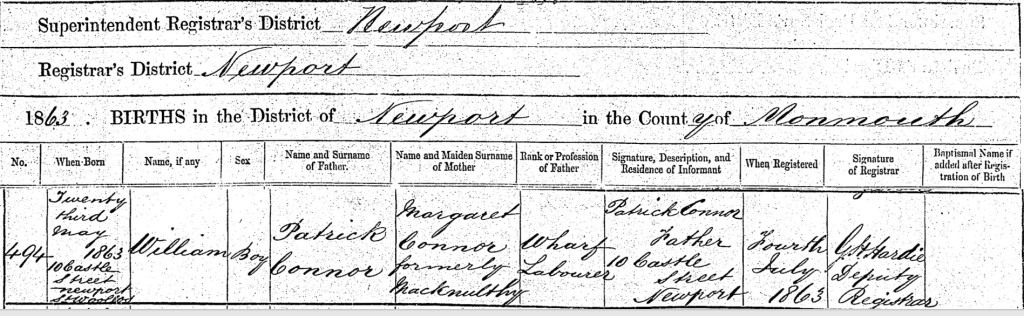 Superintendent Registrar's District Newport
Registrar's District Newport
1863. BIRTHS in the District of Newport in the County of Monmouth
No. When Born Name, if any Sex Name and Surname of Father. Name and Maiden Surname of Mother Rank or Profession of Father Signature, Description, and Residence of Informant When Registered Signature of Registrar Baptismal Name if added after Registration of Birth
494
Twenty
third
May
1863
10 Castle
Street
Newport
St Woollos
William
Boy
Patrick
Connor
Margaret
Connor
formerly
Macknulthy
Wharf
Labourer
Patrick Connor
Father
10 Castle
Street
Newport
Fourth
July
1863
Hardie
Deputy
Registrar